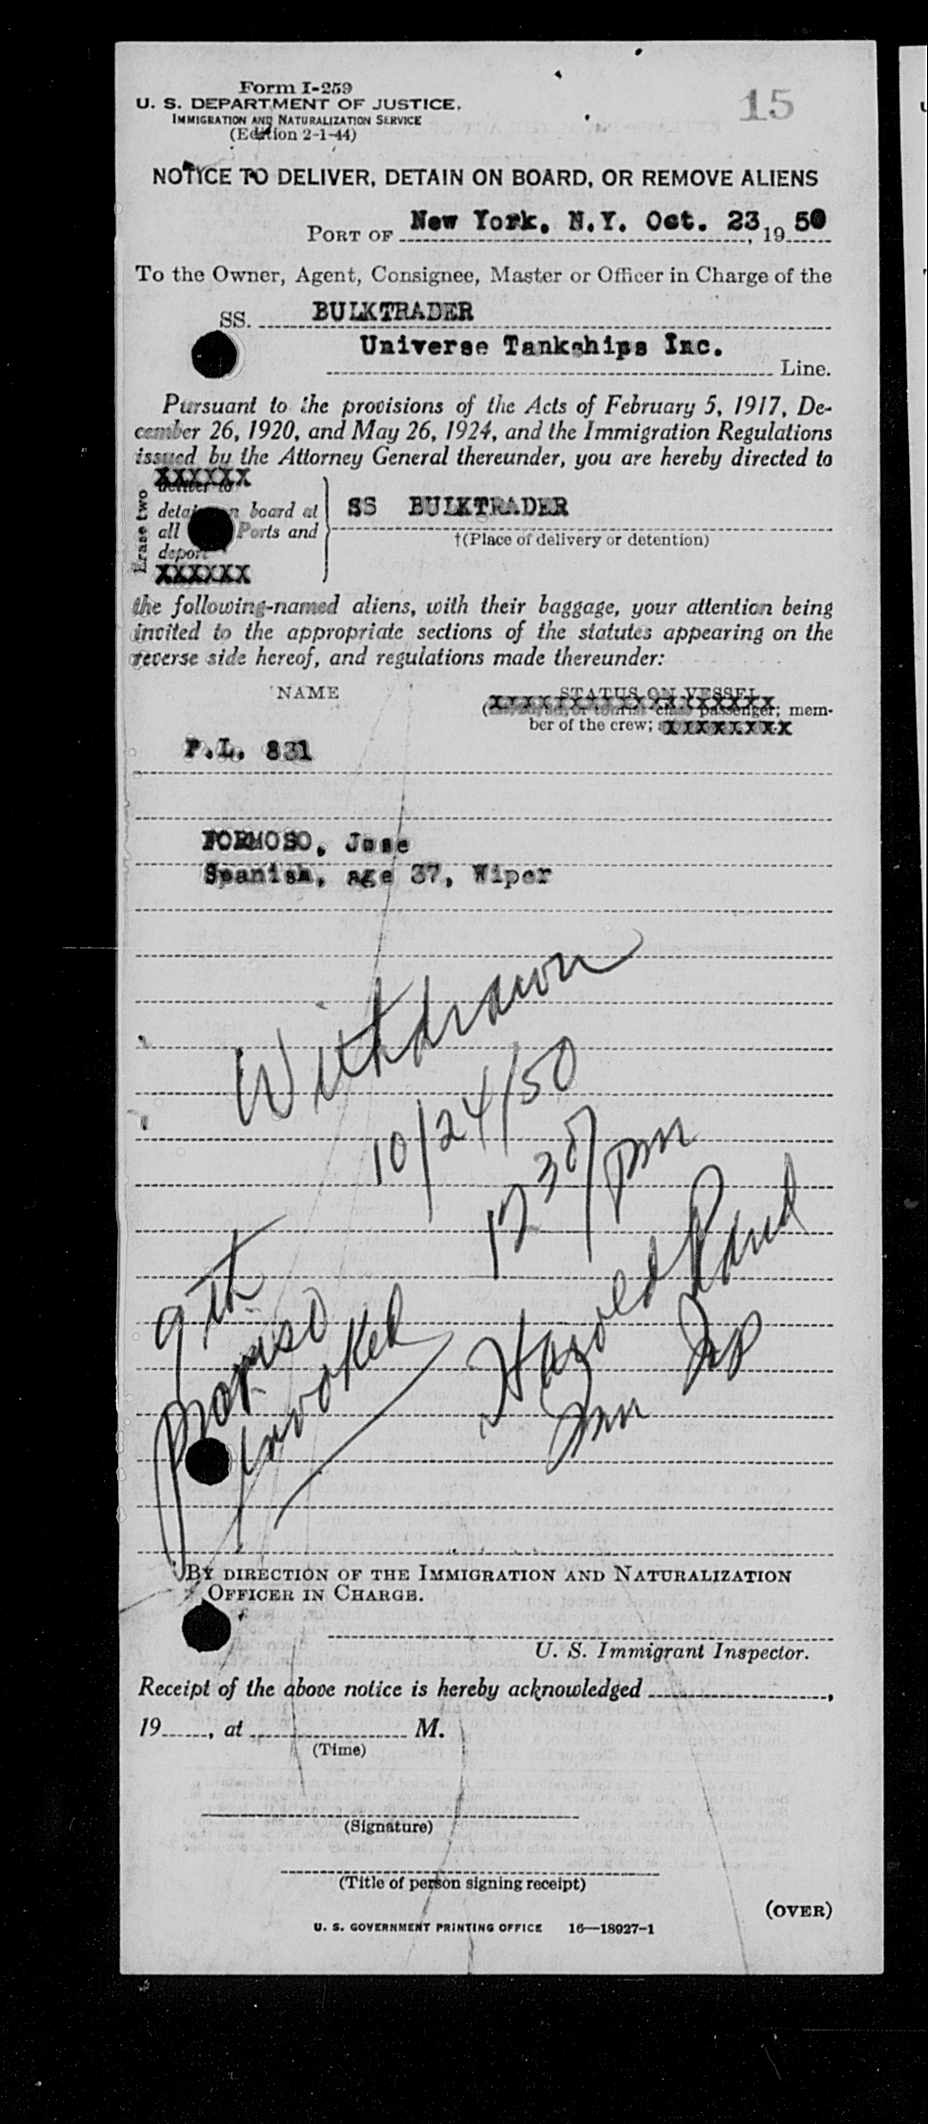 Form I-259
U. S. DEPARTMENT OF JUSTICE,
IMMIGRATION AND NATURALIZATION SERVICE
(Edition 2-1-44)
15
NOTICE TO DELIVER, DETAIN ON BOARD, OR REMOVE ALIENS
PORT OF New York, N.Y. Oct. 23, 19 50
To the Owner, Agent, Consignee, Master or Officer in Charge of the
SS. BULKTRADER
Universe Tankships Inc.
Line.
Pursuant to the provisions of the Acts of February 5, 1917, De-
cember 26, 1920, and May 26, 1924, and the Immigration Regulations
issued by the Attorney General thereunder, you are hereby directed to
XXXXXX
deliver to
Erase two
detain on board at
all Ports and
deport
XXXXXX
SS BULKTRADER
†(Place of delivery or detention)
the following-named aliens, with their baggage, your attention being
invited to the appropriate sections of the statutes appearing on the
reverse side hereof, and regulations made thereunder:
NAME
STATUS ON VESSEL
class passenger; mem-
ber of the crew; XXXXXXXX
P.L. 831
FORMOSO, Jose
Spanish, age 37, Wiper
Withdrawn
10/24/50
12 30/pm
9th
proviso
invoked
Harold Rand
Imm Insp
BY DIRECTION OF THE IMMIGRATION AND NATURALIZATION
OFFICER IN CHARGE.
U. S. Immigrant Inspector.
Receipt of the above notice is hereby acknowledged ,
19 , at M.
(Time)
(Signature)
(Title of person signing receipt)
(OVER)
U. S. GOVERNMENT PRINTING OFFICE 16—18927-1